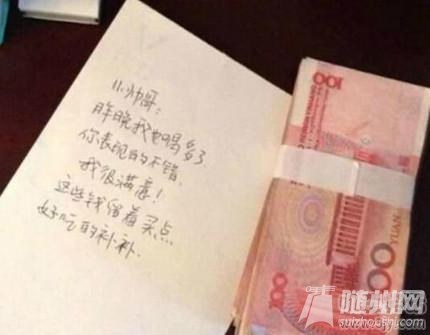 小帅哥：
昨晚我也喝多了
你表现的不错，
我很满意！
这些钱留着买点
好吃的补补.
100
100
YUAN
100
随州网
www.suizhou.com